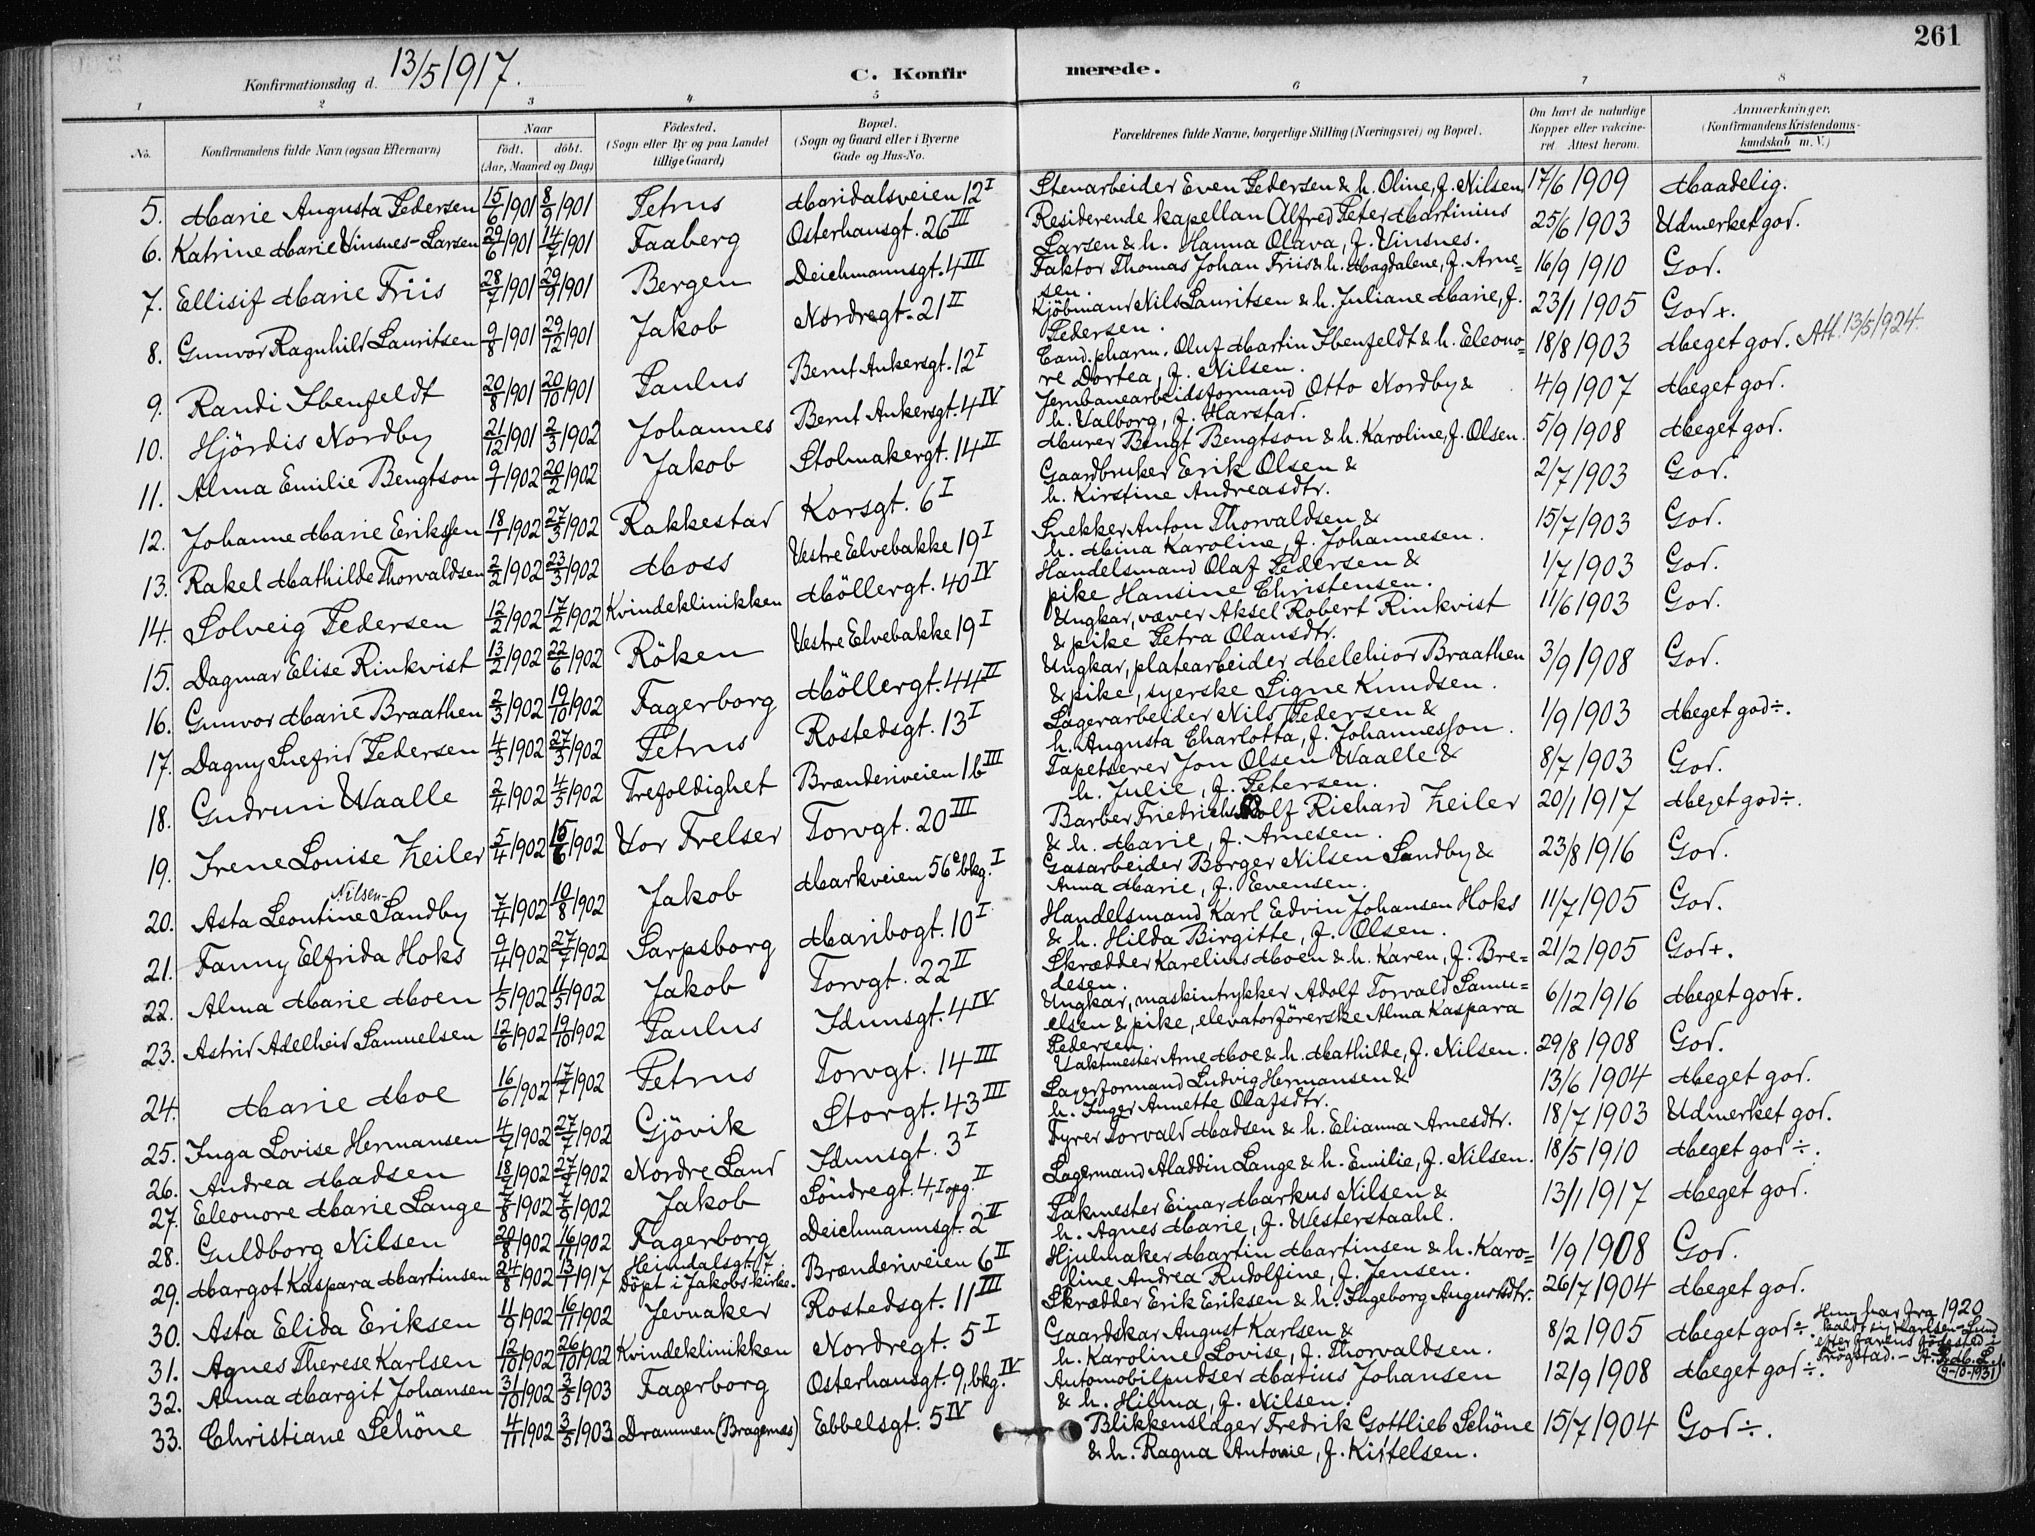 261
Konfirmationsdag d. 13/5 1917.
C. Konfirmerede.
1 2 3 4 5 6 7 8
No. Konfirmandens fulde Navn (ogsaa Efternavn) Naar født. døbt. (Aar, Maaned og Dag) Födested. (Sogn eller By og paa Landet tillige Gaard) Bopæl. (Sogn og Gaard eller i Byerne Gade og Hus-No. Forældrenes fulde Navne, borgerlige Stilling (Næringsvei) og Bopæl. Om havt de naturlige Kopper eller vakcineret Attest herom. Anmærkninger. (Konfirmandens Kristendomskundskab m. V.)
5. Marie Augusta Pedersen 15/6 1901 8/9 1901 Petrus Maridalsveien 12 I Stenarbeider Even Pedersen & h. Oline, f. Nilsen. 17/6 1909 Maadelig.
6. Katrine Marie Vinsnes-Larsen 29/6 1901 14/7 1901 Faaberg Osterhausgt. 26 III Residerende kapellan Alfred Peter Martinius Larsen & h. Hanna Olava, f. Vinsnes. 25/6 1903 Udmerket god.
7. Ellisif Marie Friis 28/7 1901 29/9 1901 Bergen Deichmannsgt. 4 III Faktor Thomas Johan Friis & h. Magdalene, f. Arnesen. 16/9 1910 God.
8. Gunvor Ragnhild Lauritsen 9/8 1901 29/12 1901 Jakob Nordregt. 21 II Kjöbmand Nils Lauritsen & h. Juliane Marie, f. Pedersen. 23/1 1905 God +.
9. Randi Ibenfeldt 20/8 1901 20/10 1901 Paulus Bernt Ankersgt. 12 I Cand. pharm. Oluf Martin Ibenfeldt & h. Eleonore Dortea, f. Nilsen. 18/8 1903 Meget god. Att. 13/5 1924.
10. Hjördis Nordby 21/12 1901 2/3 1902 Johannes Bernt Ankersgt. 4 IV Jernbanearbeidsformand Otto Nordby & h. Valborg, f. Harstad. 4/9 1907 Meget god.
11. Alma Emilie Bengtson 9/1 1902 20/2 1902 Jakob Stolmakergt. 14 II Murer Bengt Bengtson & h. Karoline, f. Olsen. 5/9 1908 Meget god.
12. Johanne Marie Eriksen 18/1 1902 27/3 1902 Rakkestad Korsgt. 6 I Gaardbruker Erik Olsen & h. Kirstine Andreasdtr. 2/7 1903 God.
13. Rakel Mathilde Thorvaldsen 2/2 1902 23/3 1902 Moss Vestre Elvebakke 19 I Snekker Anton Thorvaldsen & h. Mina Karoline, f. Johannesen. 15/7 1903 God.
14. Solveig Pedersen 12/2 1902 17/2 1902 Kvindeklinikken Möllergt. 40 IV Handelsmand Olaf Pedersen & pike Hansine Christensen. 1/7 1903 God.
15. Dagmar Elise Rinkvist 13/2 1902 22/6 1902 Röken Vestre Elvebakke 19 I Ungkar, væver Aksel Robert Rinkvist & pike Petra Olausdtr. 11/6 1903 God.
16. Gunvor Marie Braathen 2/3 1902 19/10 1902 Fagerborg Möllergt. 44 II Ungkar, platearbeider Melchior Braathen & pike, syerske Signe Knudsen. 3/9 1908 God.
17. Dagny Snefrid Pedersen 4/3 1902 27/3 1902 Petrus Rostedsgt. 13 I Lagerarbeider Nils Pedersen & h. Augusta Charlotta, f. Johannesson. 1/9 1903 Meget god ÷.
18. Gudrun Waalle 2/4 1902 4/5 1902 Trefoldighet Brænderiveien 1b III Tapetserer Jon Olsen Waalle & h. Julie, f. Petersen. 8/7 1903 God.
19. Irene Louise Zeiler 5/4 1902 15/6 1902 Vor Frelser Torvgt. 20 III Barber Friedrich Rolf Richard Zeiler & h. Marie, f. Arnesen. 20/1 1917 Meget god ÷.
20. Asta Leontine Nilsen-Sandby 7/4 1902 10/8 1902 Jakob Markveien 56 c bkg. I Gasarbeider Borger Nilsen Sandby & Anna Marie, f. Evensen. 23/8 1916 God.
21. Fanny Elfrida Hoks 9/4 1902 27/7 1902 Sarpsborg Maribogt. 10 I Handelsmand Karl Edvin Johansen Hoks & h. Hilda Birgitte, f. Olsen. 11/7 1905 God.
22. Alma Marie Moen 1/5 1902 11/5 1902 Jakob Torvgt. 22 II Skrædder Karelius Moen & h. Karen, f. Bredesen. 21/2 1905 God +.
23. Astrid Adelheid Samuelsen 12/6 1902 19/10 1902 Paulus Idunsgt. 4 IV Ungkar, maskintrykker Adolf Torvald Samuelsen & pike, elevatorförerske Alma Kaspara Pedersen. 6/12 1916 Meget god +.
24. Marie Moe 16/6 1902 17/7 1902 Petrus Torvgt. 14 III Vaktmester Arne Moe & h. Mathilde, f. Nilsen. 29/8 1908 God.
25. Inga Lovise Hermansen 4/7 1902 27/7 1902 Gjövik Storgt. 43 III Lagerformand Ludvig Hermansen & h. Inger Annette Olafsdtr. 13/6 1904 Meget god.
26. Andrea Madsen 18/7 1902 27/7 1902 Nordre Land Idunsgt. 3 I Fyrer Torvald Madsen & h. Elianna Arnesdtr. 18/7 1903 Udmerket god.
27. Eleonore Marie Lange 7/8 1902 7/9 1902 Jakob Söndregt. 4, I opg. II Lagermand Aladdin Lange & h. Emilie, f. Nilsen. 18/5 1910 Meget god ÷.
28. Guldborg Nilsen 20/8 1902 16/11 1902 Fagerborg Deichmannsgt. 2 II Takmester Einar Markus Nilsen & h. Agnes Marie, f. Westerstaahl. 13/1 1917 Meget god.
29. Margot Kaspara Martinsen 24/8 1902 13/1 1917 Heimdalsgt. 17 Döpt i Jakobs kirke. Brænderiveien 6 II Hjulmaker Martin Martinsen & h. Karoline Andrea Rudolfine, f. Jensen. 1/9 1908 God.
30. Asta Elida Eriksen 4/9 1902 16/11 1902 Jevnaker Rostedsgt. 11 III Skrædder Erik Eriksen & h. Ingeborg Augustdtr. 26/7 1904 Meget god.
31. Agnes Therese Karlsen 12/10 1902 26/10 1902 Kvindeklinikken Nordregt. 5 I Gaardskar August Karlsen & h. Karoline Lovise, f. Thorvaldsen. 8/2 1905 Meget god ÷. Hun har fra 1920 kaldt sig Karlsen-Lund efter farens födested i Trögstad. 9-10-1931
32. Anna Margit Johansen 31/10 1902 3/5 1903 Fagerborg Osterhausgt. 9, bkg. IV Automobilpudser Marius Johansen & h. Hilma, f. Nilsen. 12/9 1908 Meget god ÷.
33. Christiane Schöne 4/11 1902 3/5 1903 Drammen (Bragernes) Ebbelsgt. 5 IV Blikkenslager Fredrik Gottlieb Schöne & h. Ragna Antonie, f. Kistelsen. 15/7 1904 God ÷.